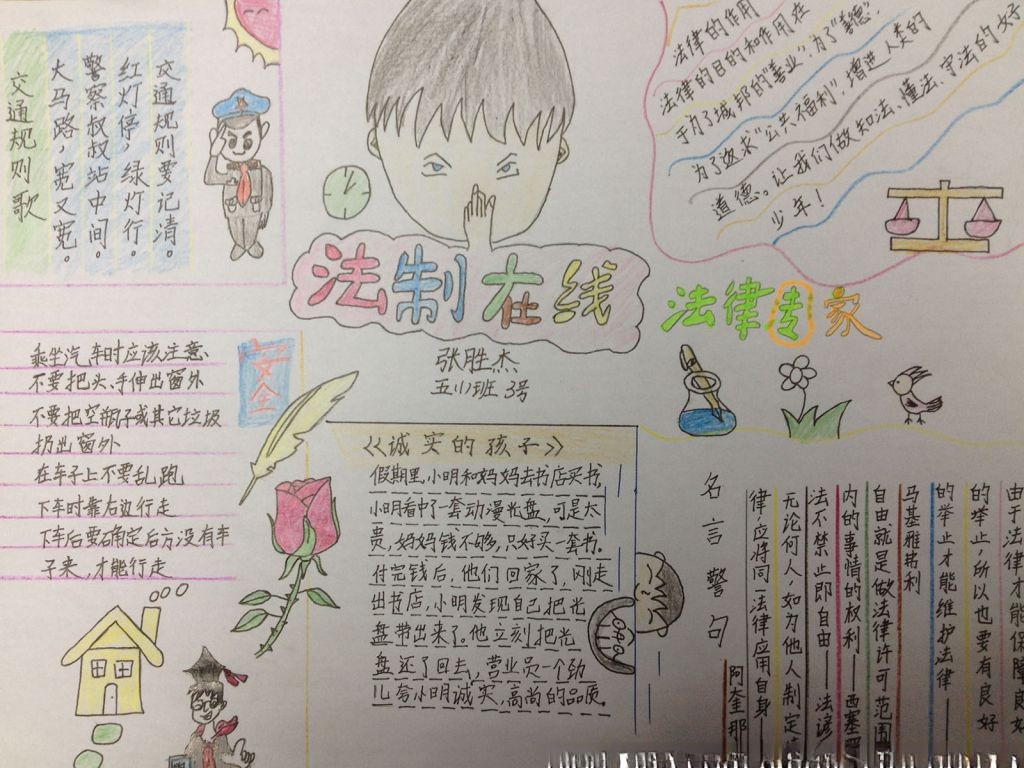 交通规则歌
大马路，宽又宽。
警察叔叔站中间。
红灯停，绿灯行。
交通规则要记清。
法律的作用
法律的目的和作用在
于为了城邦的"善业"，为了"美德"
为了追求"公共福利"，增进人类的
道德。让我们做知法、懂法、守法的好
少年！
法制在线
法律专家
张胜杰
五(1)班 3号
安全
乘坐汽车时应该注意、
不要把头、手伸出窗外
不要把空瓶子或其它垃圾
扔出窗外
在车子上不要乱跑
下车时靠右边行走
下车后要确定后方没有车
子来，才能行走
《诚实的孩子》
假期里，小明和妈妈去书店买书，
小明看中了一套动漫光盘，可是太
贵，妈妈钱不够，只好买一套书。
付完钱后，他们回家了，刚走
出书店，小明发现自己把光
盘带出来了。他立刻把光
盘还了回去，营业员一个劲
儿夸小明诚实，高尚的品质。
名言警句
由于法律才能保障良好
的举止，所以也要有良好
的举止才能维护法律——
马基雅弗利
自由就是做法律许可范围
内的事情的权利——西塞罗
法不禁止即自由——法谚
无论何人，如为他人制定
律，应将同一法律应用自身——
阿奎那